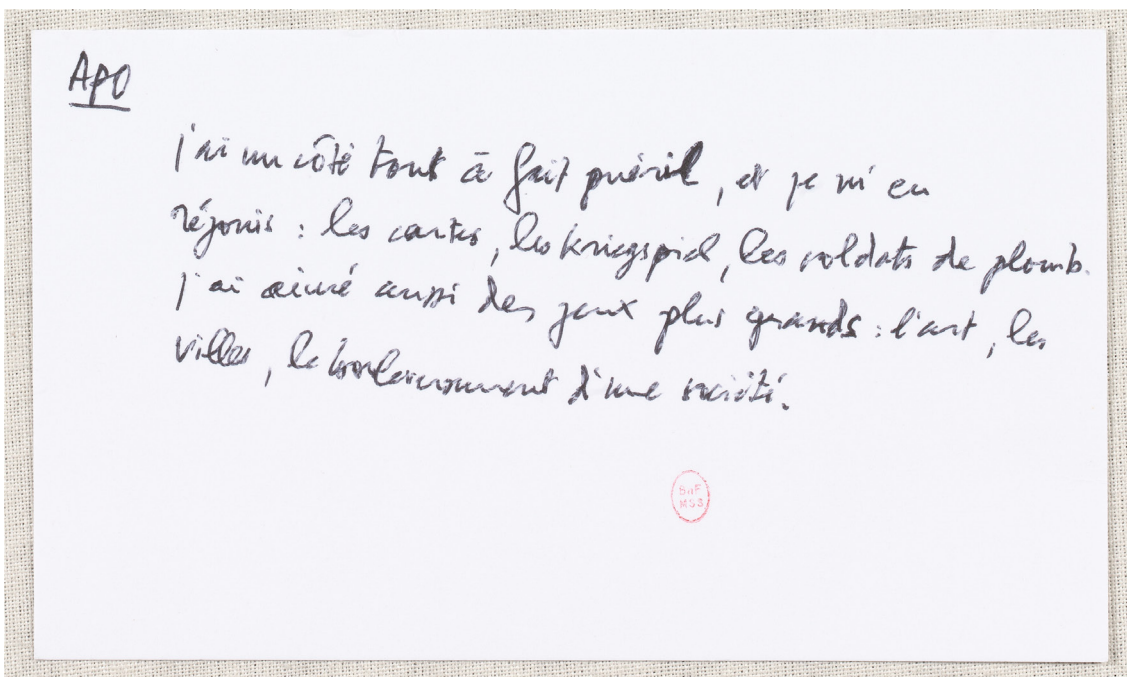 Apo
j'ai un côté tout à fait puéril, et je m'en
réjouis : les cartes, les kriegspiel, les soldats de plomb.
j'ai aimé aussi des jeux plus grands : l'art, les
villes, le bouleversement d'une société.
BnF
MSS